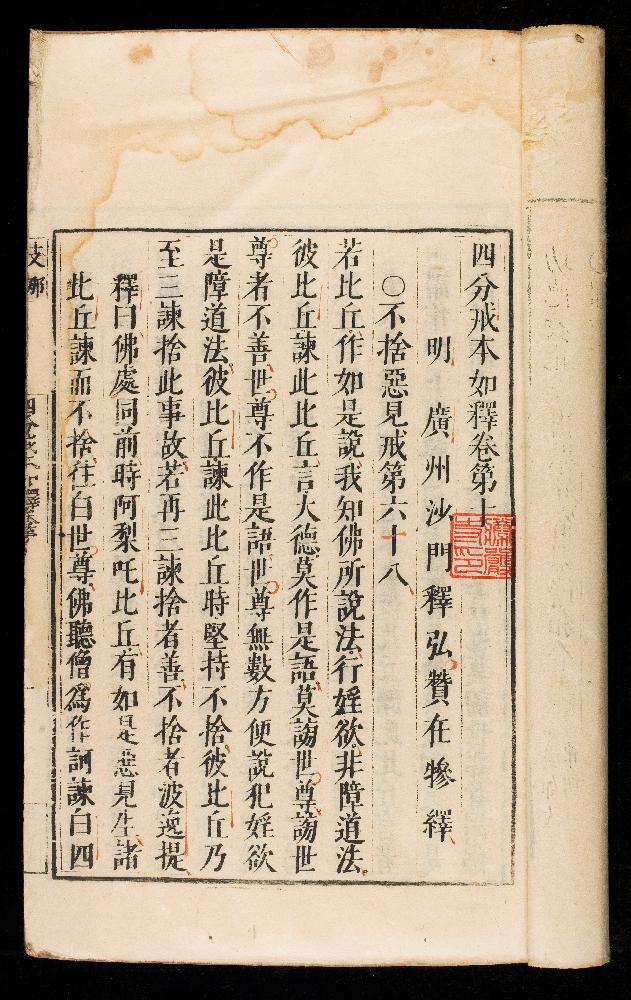 四分戒本如釋卷第十
明　廣州沙門釋弘贊在犙　釋
○不捨惡見戒第六十八
若比丘作如是說我知佛所說法行婬欲非障道法
彼比丘諫此比丘言大德莫作是語莫謗世尊謗世
尊者不善世尊不作是語世尊無數方便說犯婬欲
是障道法彼比丘諫此比丘時堅持不捨彼比丘乃
至三諫捨此事故若再三諫捨者善不捨者波逸提
釋曰佛處同前時阿梨吒比丘有如是惡見生諸
比丘諫而不捨往白世尊佛聽僧為作訶諫白四